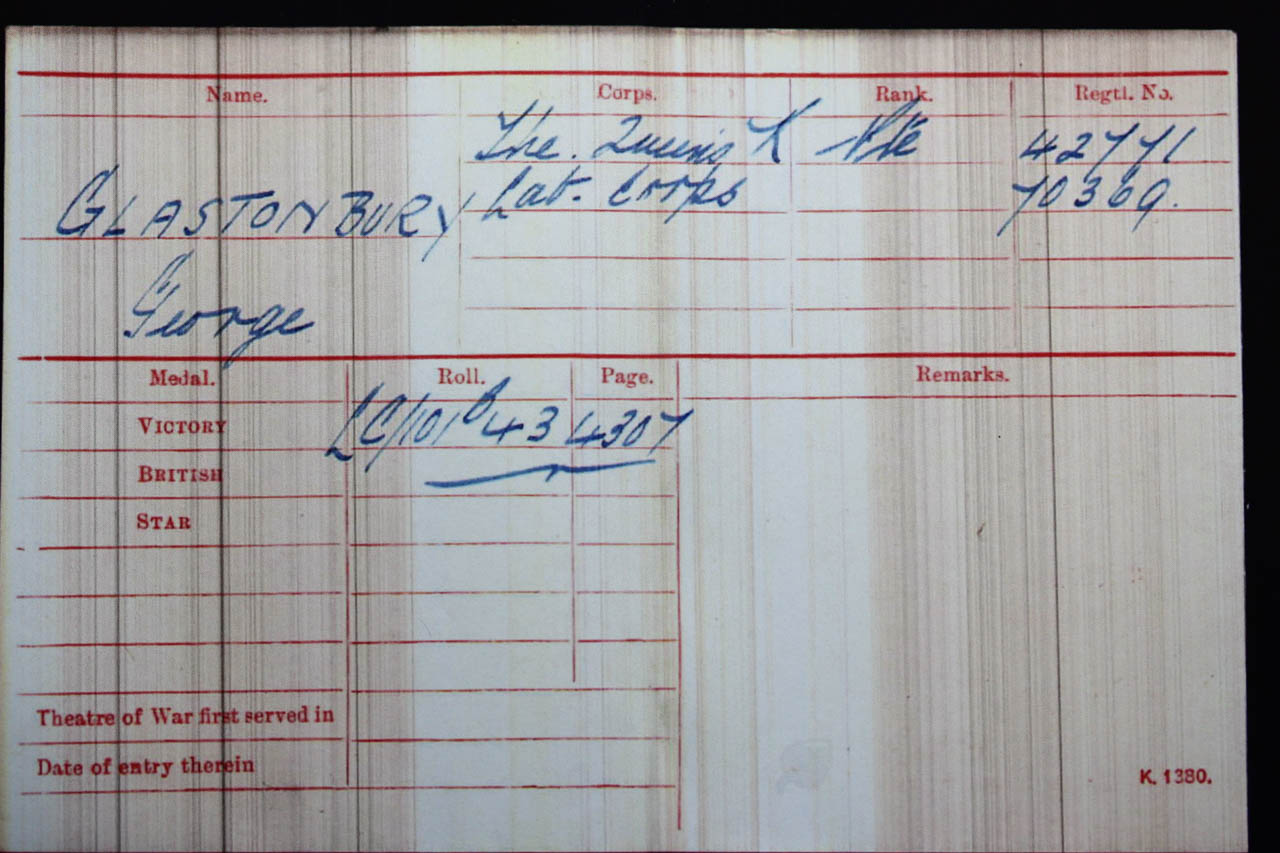 Name. Corps. Rank. Regtl. No.
The. Queens R Pte 42771
GLASTONBURY Lab. Corps 70369.
George
Medal. Roll. Page. Remarks.
VICTORY LC/101B43 4307
BRITISH
STAR
Theatre of War first served in
Date of entry therein
K. 1380.